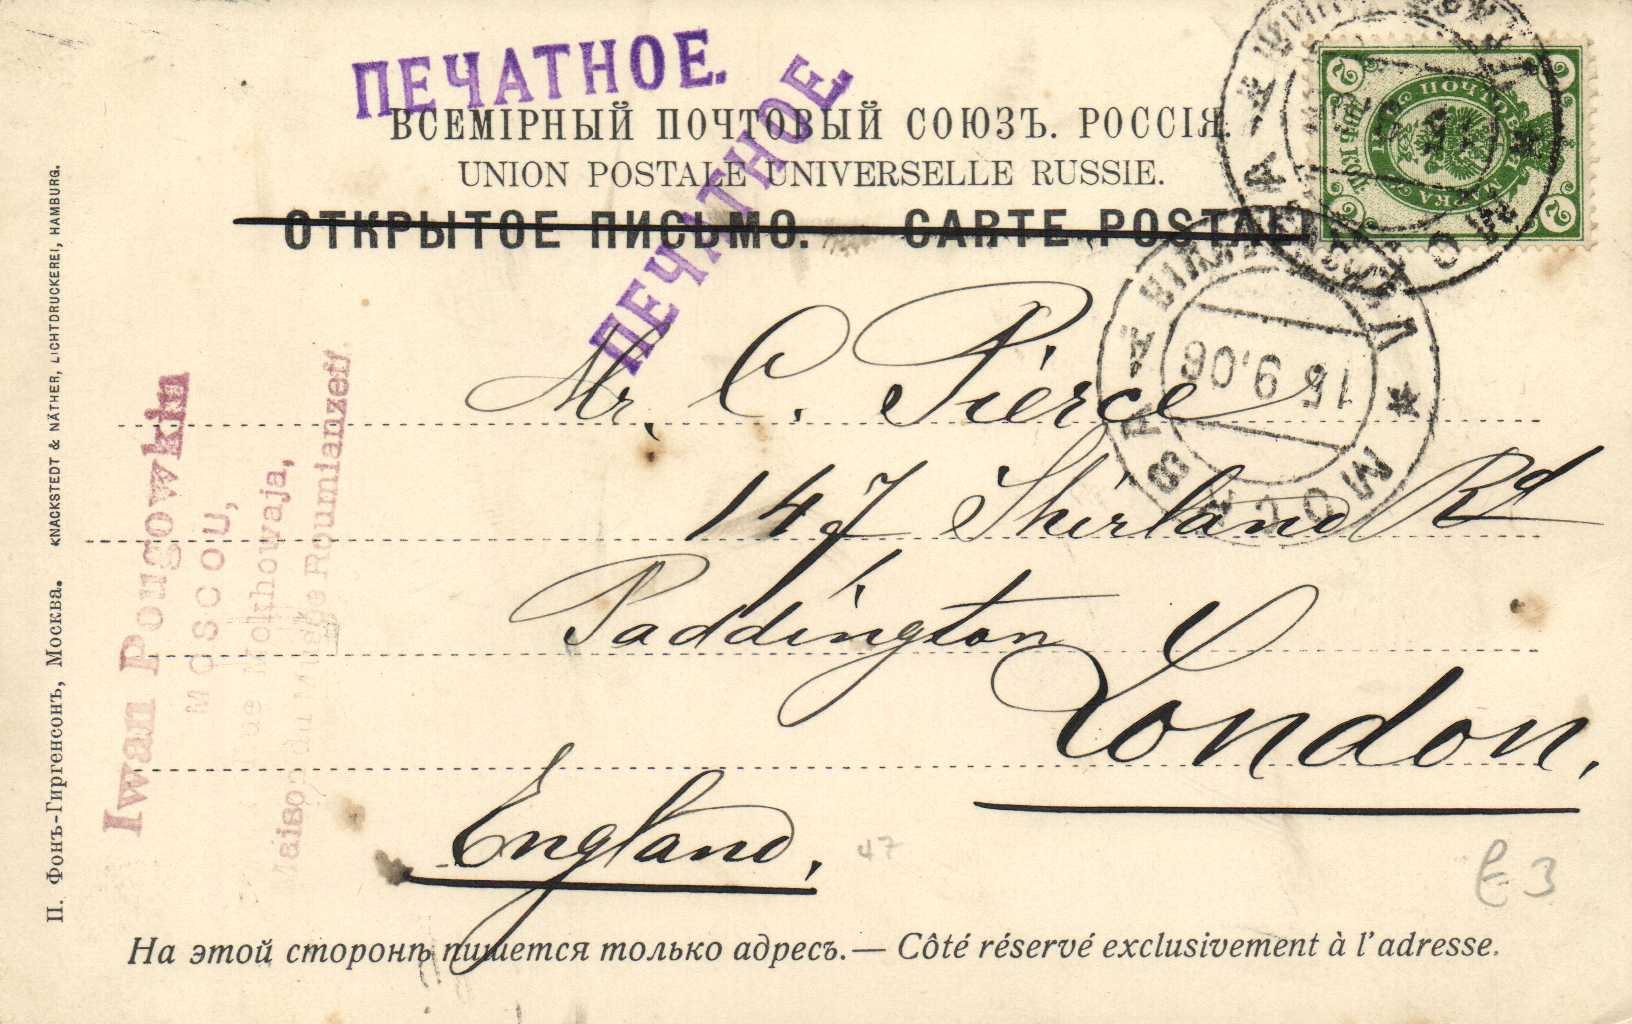 ПЕЧАТНОЕ.
ПЕЧАТНОЕ
ВСЕМІРНЫЙ ПОЧТОВЫЙ СОЮЗЪ. РОССІЯ.
UNION POSTALE UNIVERSELLE RUSSIE.
ОТКРЫТОЕ ПИСЬМО. CARTE POSTALE
Mr. C. Pierce
147 Shirland Rd
Paddington
London,
England,
МОСКВА
15 9.06
Iwan Pougowkin
MOSCOU,
Rue Mokhowaja,
Maison du Musée Roumianzeff.
П. Фонъ-Гиргенсонъ, Москва. KNACKSTEDT & NÄTHER, LICHTDRUCKEREI, HAMBURG.
47
£ 3
На этой сторонѣ пишется только адресъ.— Côté réservé exclusivement à l'adresse.